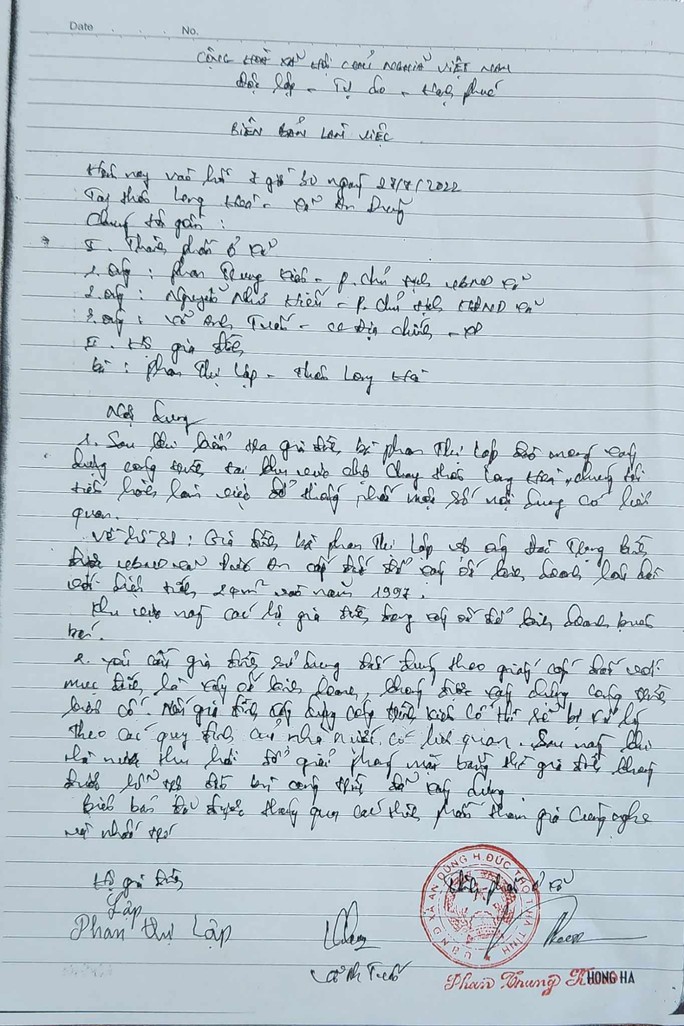 Date . . . . . No.
CỘNG HOÀ XÃ HỘI CHỦ NGHĨA VIỆT NAM
Độc lập - Tự do - Hạnh phúc
BIÊN BẢN LÀM VIỆC
Hôm nay vào hồi giờ 30 ngày 2022
Tại thôn Long - xã An Dũng
Chúng tôi gồm :
I. Thành phần ở xã
1. ông : Phan Trung - P. chủ tịch UBND xã
2. ông : Nguyễn Như - P. chủ tịch HĐND xã
3. ông : Võ Anh Tuấn - Địa chính -
II. Hộ gia đình
bà : Phan Thị Lập - thôn Long
Nội dung
1. Sau khi kiểm tra gia đình bà Phan Thị Lập xây
dựng công trình tại khu vực chợ thôn Long chúng tôi
tiến hành làm việc để thống nhất một số nội dung có liên
quan.
Về hồ sơ : Gia đình bà Phan Thị Lập và ông
được UBND xã An cấp đất để xây ốt kinh doanh
với diện tích 24m² vào năm 1997.
Khu vực này các hộ gia đình xây ốt để kinh doanh buôn
bán.
2. yêu cầu gia đình sử dụng đất đúng theo giấy cấp đất với
mục đích là xây ốt kinh doanh, không được xây dựng công trình
kiên cố. Nếu gia đình xây dựng công trình kiên cố thì sẽ bị xử lý
theo các quy định của nhà nước có liên quan. Sau này khi
nhà nước thu hồi để giải phóng mặt bằng thì gia đình không
được hỗ trợ công trình đã xây dựng.
Biên bản đã được thông qua các thành phần tham gia cùng nghe
và nhất trí
Hộ gia đình
Thành phần ở xã
Lập
Phan Thị Lập
U.B.N.D XÃ AN DŨNG H. ĐỨC THỌ T. HÀ TĨNH
Anh Tuấn
Phan Trung
HONG HA